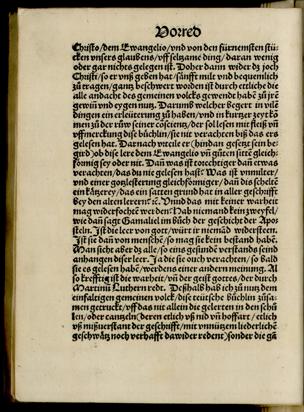 Vorred
Christo/dem Ewangelio/vnd von den fürnemsten stü-
cken vnsers glaubens/vff seltzame ding/daran wenig
oder gar nichts gelegen ist. Doher dann wider dz joch
Christi/so er vnß geben hat/sänfft milt vnd bequemlich
zů tragen/gantz beschwert worden ist durch etliche die
alle andacht des gemeinen volcks gewendt habē zů jrē
gewiñ vnd eygen nutz. Darumb welcher begert in vilē
dingen ein erleüterung zů haben/vnd in kurtzer zyt kō
men zů der růw seiner cōscientz/der sol lesen mit fleiß vñ
vffmerckung dise büchlin/sie nit verachten biß das ers
gelesen hat. Darnach vrteile er (hindan gesetzt sein be
gird) ob dise lere dem Ewangelio vñ gůten sittē gleich-
kömig sey oder nit. Dan was ist torechtiger dañ etwas
verachten/das du nie gelesen hast? Was ist vnmilter/
vnd einer gotzlesterung gleichförmiger/dañ dis scheltē
ein kätzerey/das ein satten grund hat in aller geschrifft
Bey den alten lerern ꝛc. Vnnd das mit keiner warheit
mag widerfochtē werdē? Hab niemand kein zweyfel/
wie dañ sagt Gamaliel im bůch der geschicht der Apos
steln. Ist die leer von got/würt ir niemād widersteen.
Ist sie dañ von menschē/so mag sie kein bestand habē.
Man sicht aber dz alle/so eins gesunden verstands seind
anhangen diser leer. Ja die sie ouch verachten/so bald
sie es gelesen habē/werdens einer andern meinung. Al
so krefftig ist die warheit/vñ der geist gottes/der durch
Martinū Luthern redt. Deßhalb hab ich zů nutz dem
einfaltigen gemeinen volck/dise teütsche büchlin zůsa-
men getruckt/vff das nit allein die gelerten in den schů
len/oder cantzeln (deren etlich vß nid vñ hoffart/etlich
vß mißuerstant der geschrifft/mit vnnützem liederlichē
geschwätz noch verhafft dawider redent) sonder die gā